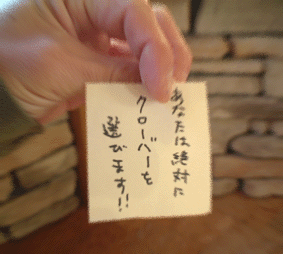 あなたは絶対に
クローバーを
選びます!!